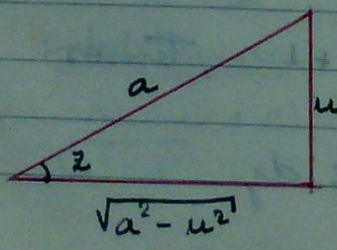 a
u
z
√(a² - u²)